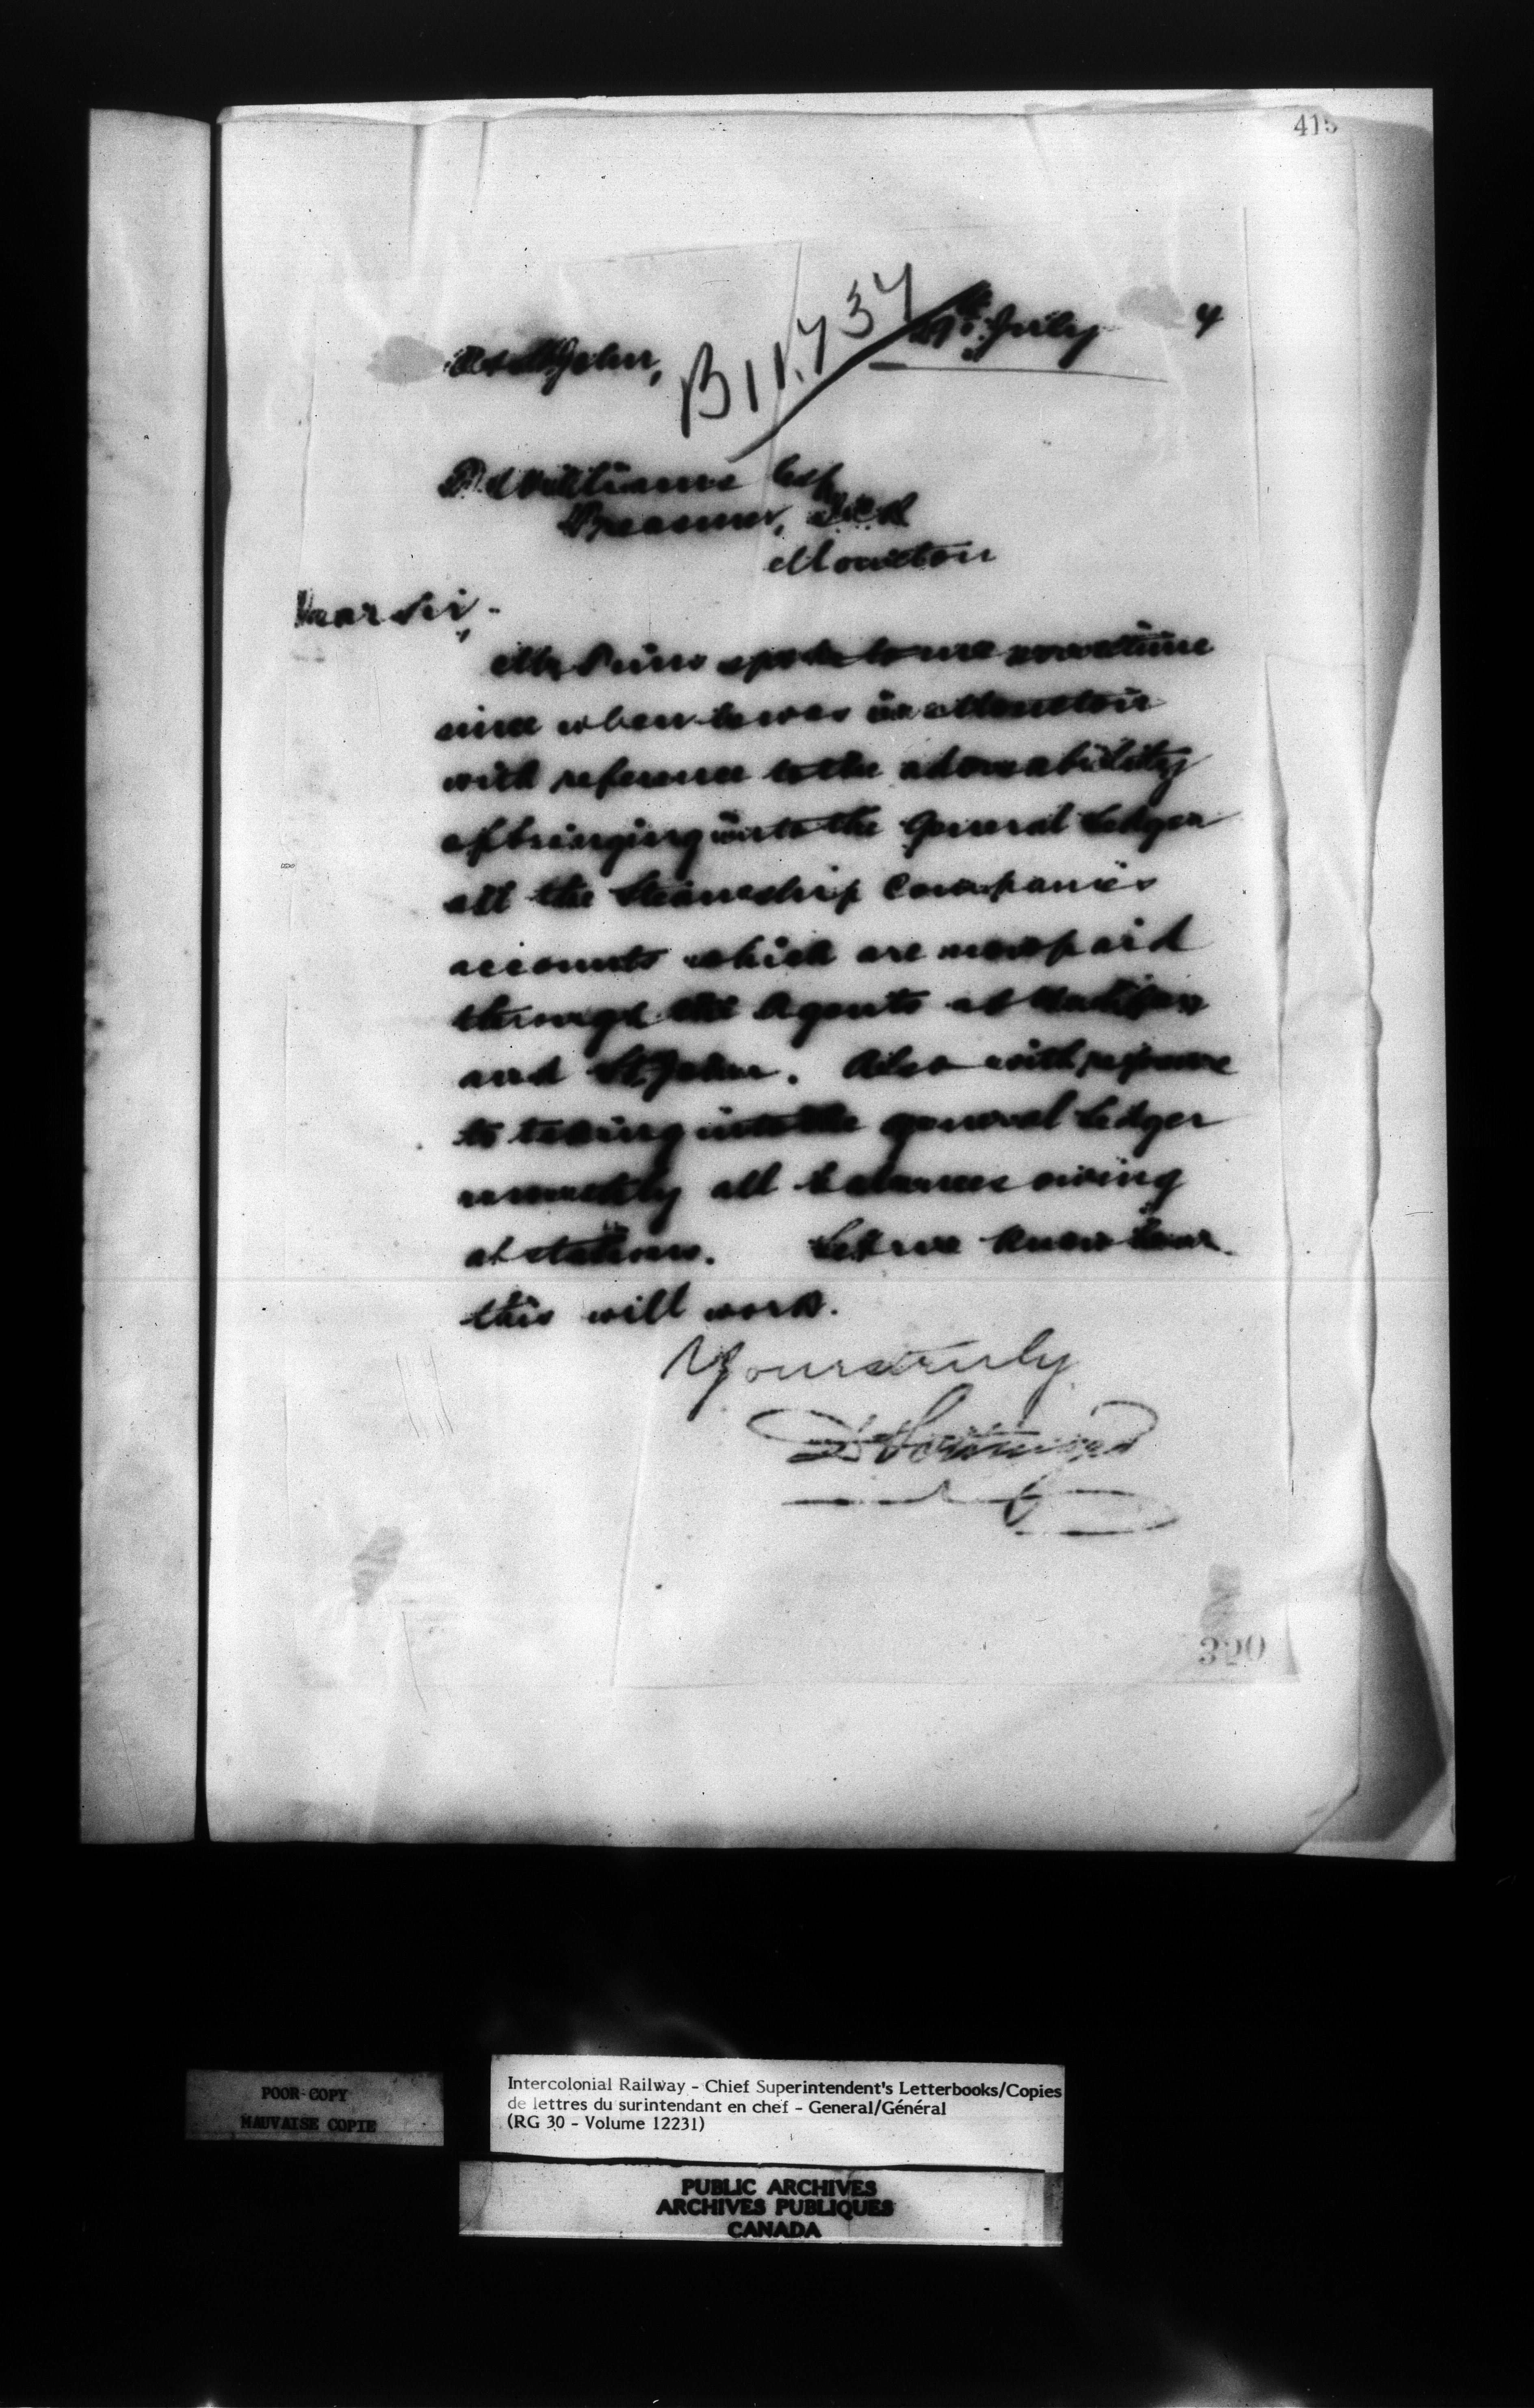 415
B11.737
29th July 4
St John,
Williams Esq
Treasurer, I.C.R
Moncton
Dear Sir,
Mr. spoke to me sometime
since when he was in Moncton
with reference to the advisability
of bringing into the General Ledger
all the Steamship Companies
accounts which are now paid
through the Agents at Halifax
and St. John. Also with reference
to taking into the general Ledger
monthly all balances owing
at stations. Let me know how
this will work.
Yours truly
D Pottinger
320
POOR COPY
MAUVAISE COPIE
Intercolonial Railway - Chief Superintendent's Letterbooks/Copies
de lettres du surintendant en chef - General/Général
(RG 30 - Volume 12231)
PUBLIC ARCHIVES
ARCHIVES PUBLIQUES
CANADA